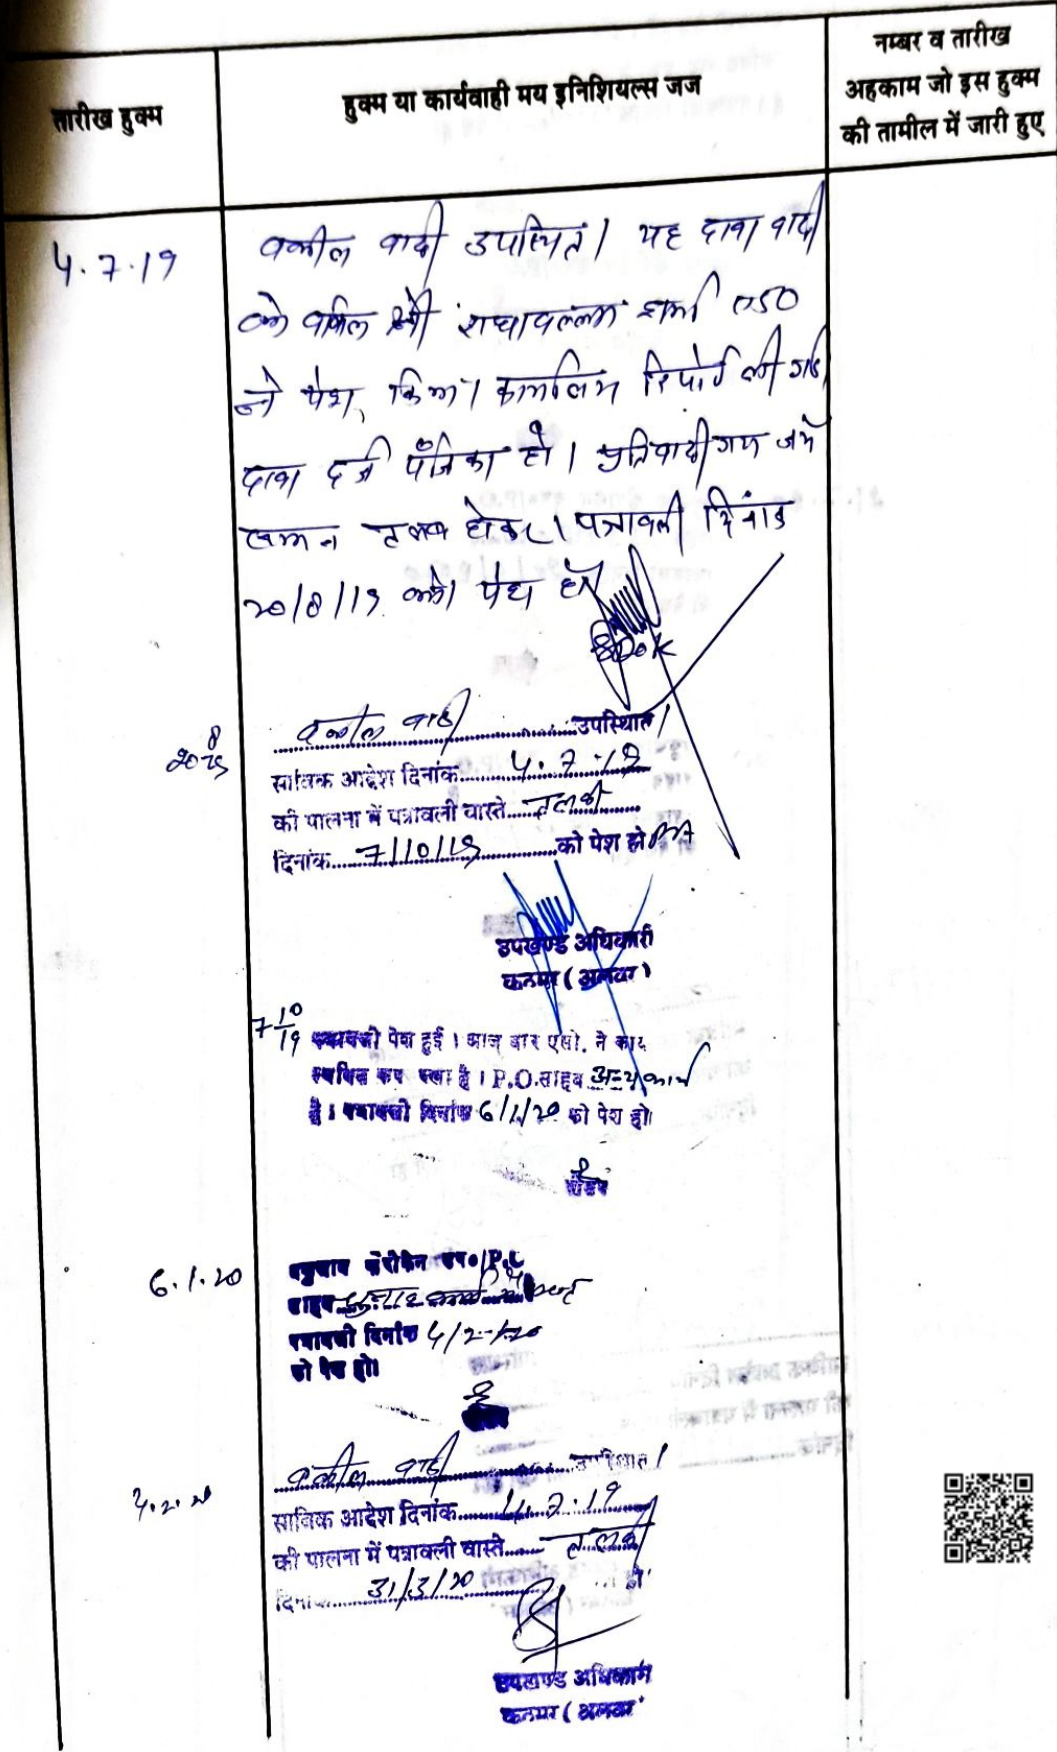 तारीख हुक्म
हुक्म या कार्यवाही मय इनिशियल्स जज
नम्बर व तारीख
अहकाम जो इस हुक्म
की तामील में जारी हुए
4.7.19
वकील वादी उपस्थित। यह दावा वादी
के वकिल श्री राधावल्लभ शर्मा एड0
ने पेश किया। रिपोर्ट ली गई
दावा दर्ज पंजिका हो। प्रतिवादीगण जर्ये
समन तलब होकर। पत्रावली दिनांक
20/8/19 को पेश हो
20 8/19
वकील वादी उपस्थित।
साबिक आदेश दिनांक 4.7.19
की पालना में पत्रावली वास्ते तलबी
दिनांक 7/10/19 को पेश हो
उपखण्ड अधिकारी
कठूमर (अलवर)
7 10/19
पत्रावली पेश हुई। आज बार एसो. ने कार्य
स्थगित कर रखा है। P.O. साहब अन्य कार्य
है। पत्रावली दिनांक 6/1/20 को पेश हो।
रीडर
6.1.20
साहब चुनाव कार्य में
पत्रावली दिनांक 4/2/20
को पेश हो।
4.2.20
वकील वादी उपस्थित।
साबिक आदेश दिनांक 4.7.19
की पालना में पत्रावली वास्ते तलबी
दिनांक 31/3/20 हो
उपखण्ड अधिकारी
कठूमर (अलवर